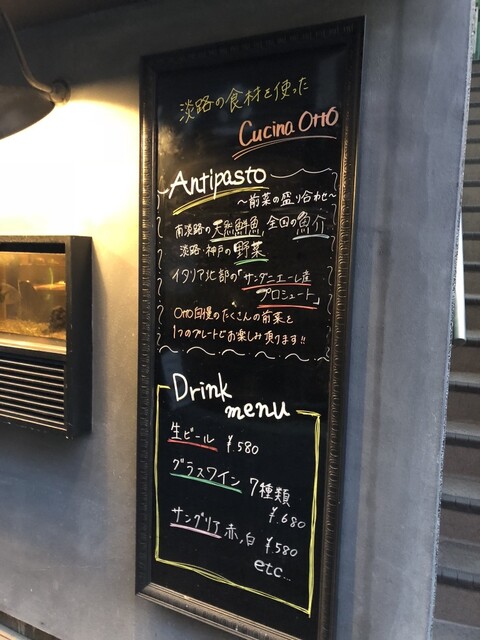 淡路の食材を使った
Cucina Otto
Antipasto
〜前菜の盛り合わせ〜
南淡路の天然鮮魚、全国の魚介
淡路・神戸の野菜
イタリア北部の「サンダニエーレ産
プロシュート」
Otto自慢のたくさんの前菜を
1つのプレートでお楽しみ頂けます!!
Drink
menu
生ビール ¥.580
グラスワイン 7種類
¥.680
サングリア 赤,白 ¥.580
etc...